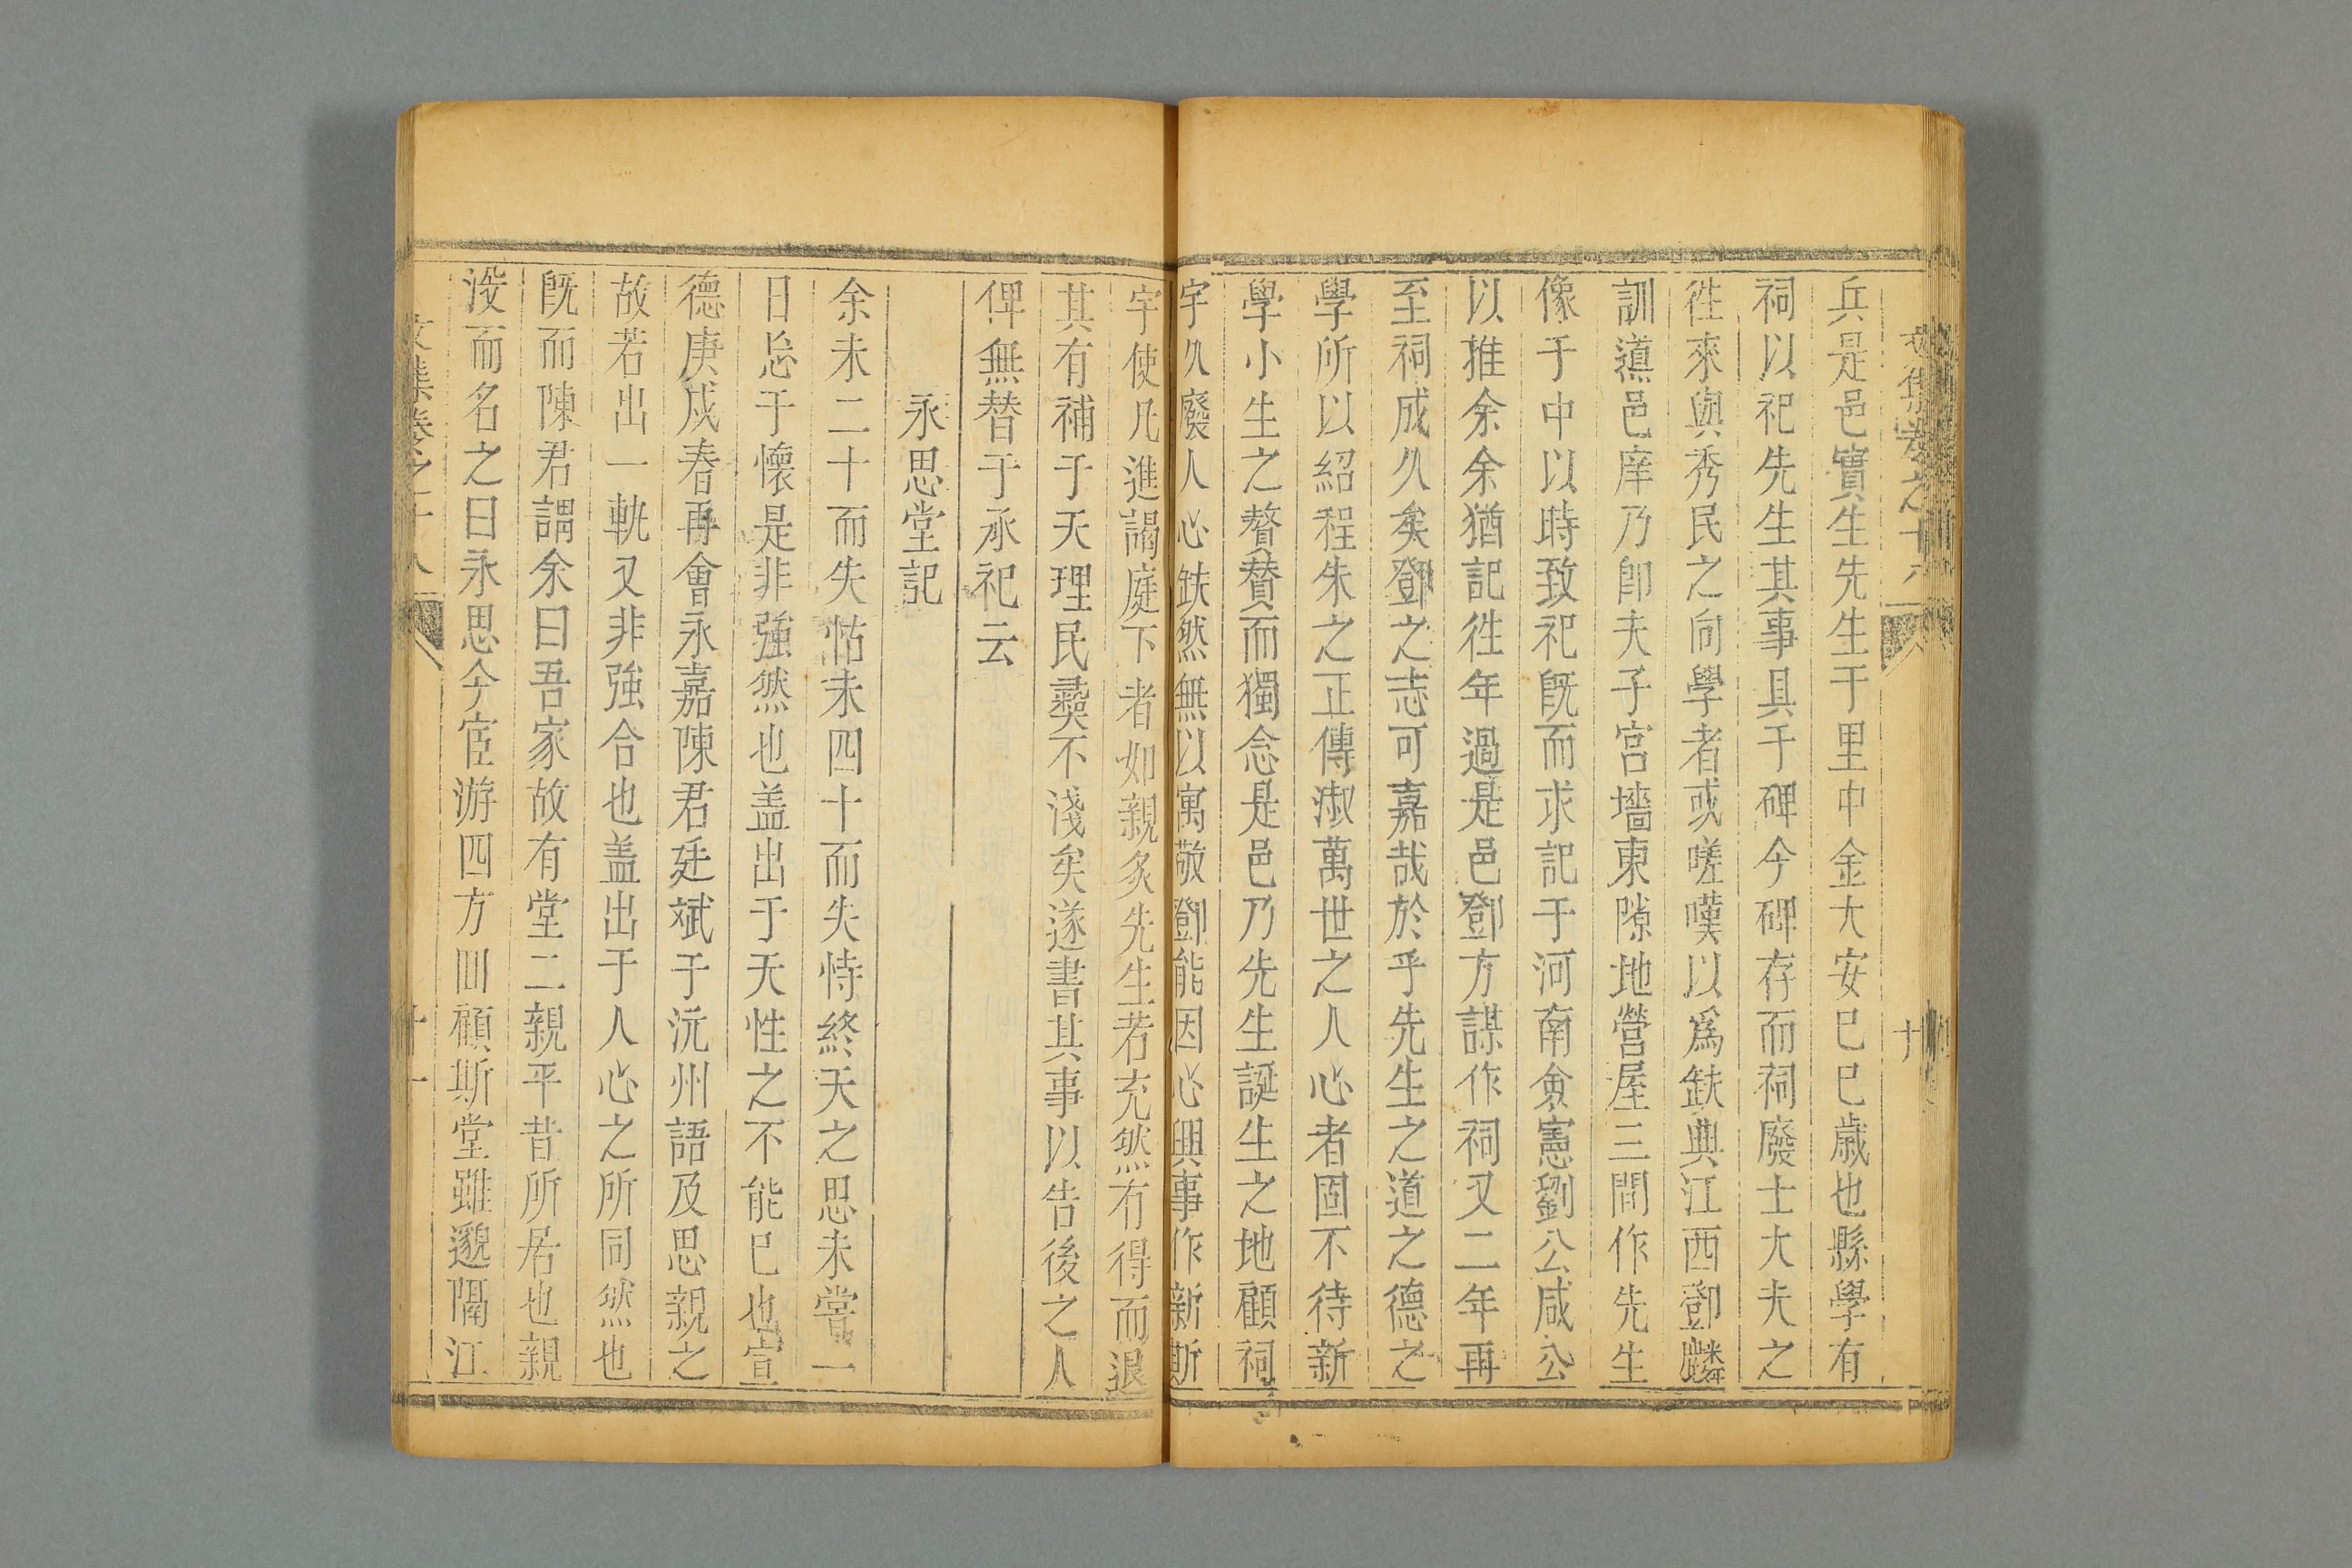 文集卷之十八
十
兵是邑實生先生于里中金大安己巳歲也縣學有
祠以祀先生其事具于碑今碑存而祠廢士大夫之
徃來與秀民之向學者或嗟嘆以爲缺典江西鄧麟
訓導邑庠乃卽夫子宮墻東隙地營屋三間作先生
像于中以時致祀旣而求記于河南僉憲劉公咸公
以推余余猶記徃年過是邑鄧方謀作祠又二年再
至祠成久矣鄧之志可嘉哉於乎先生之道之德之
學所以紹程朱之正傳淑萬世之人心者固不待新
學小生之贅贊而獨念是邑乃先生誕生之地顧祠
宇久廢人心缺然無以寓敬鄧能因心興事作新斯
宇使凡進謁庭下者如親炙先生若充然有得而退
其有補于天理民彛不淺矣遂書其事以告後之人
俾無替于承祀云
永思堂記
余未二十而失怙未四十而失恃終天之思未甞一
日忘于懷是非強然也盖出于天性之不能已也宣
德庚戌春再會永嘉陳君廷斌于沅州語及思親之
故若出一軌又非強合也盖出于人心之所同然也
旣而陳君謂余曰吾家故有堂二親平昔所居也親
沒而名之曰永思今宦游四方回顧斯堂雖邈隔江
文集卷之十八
十一